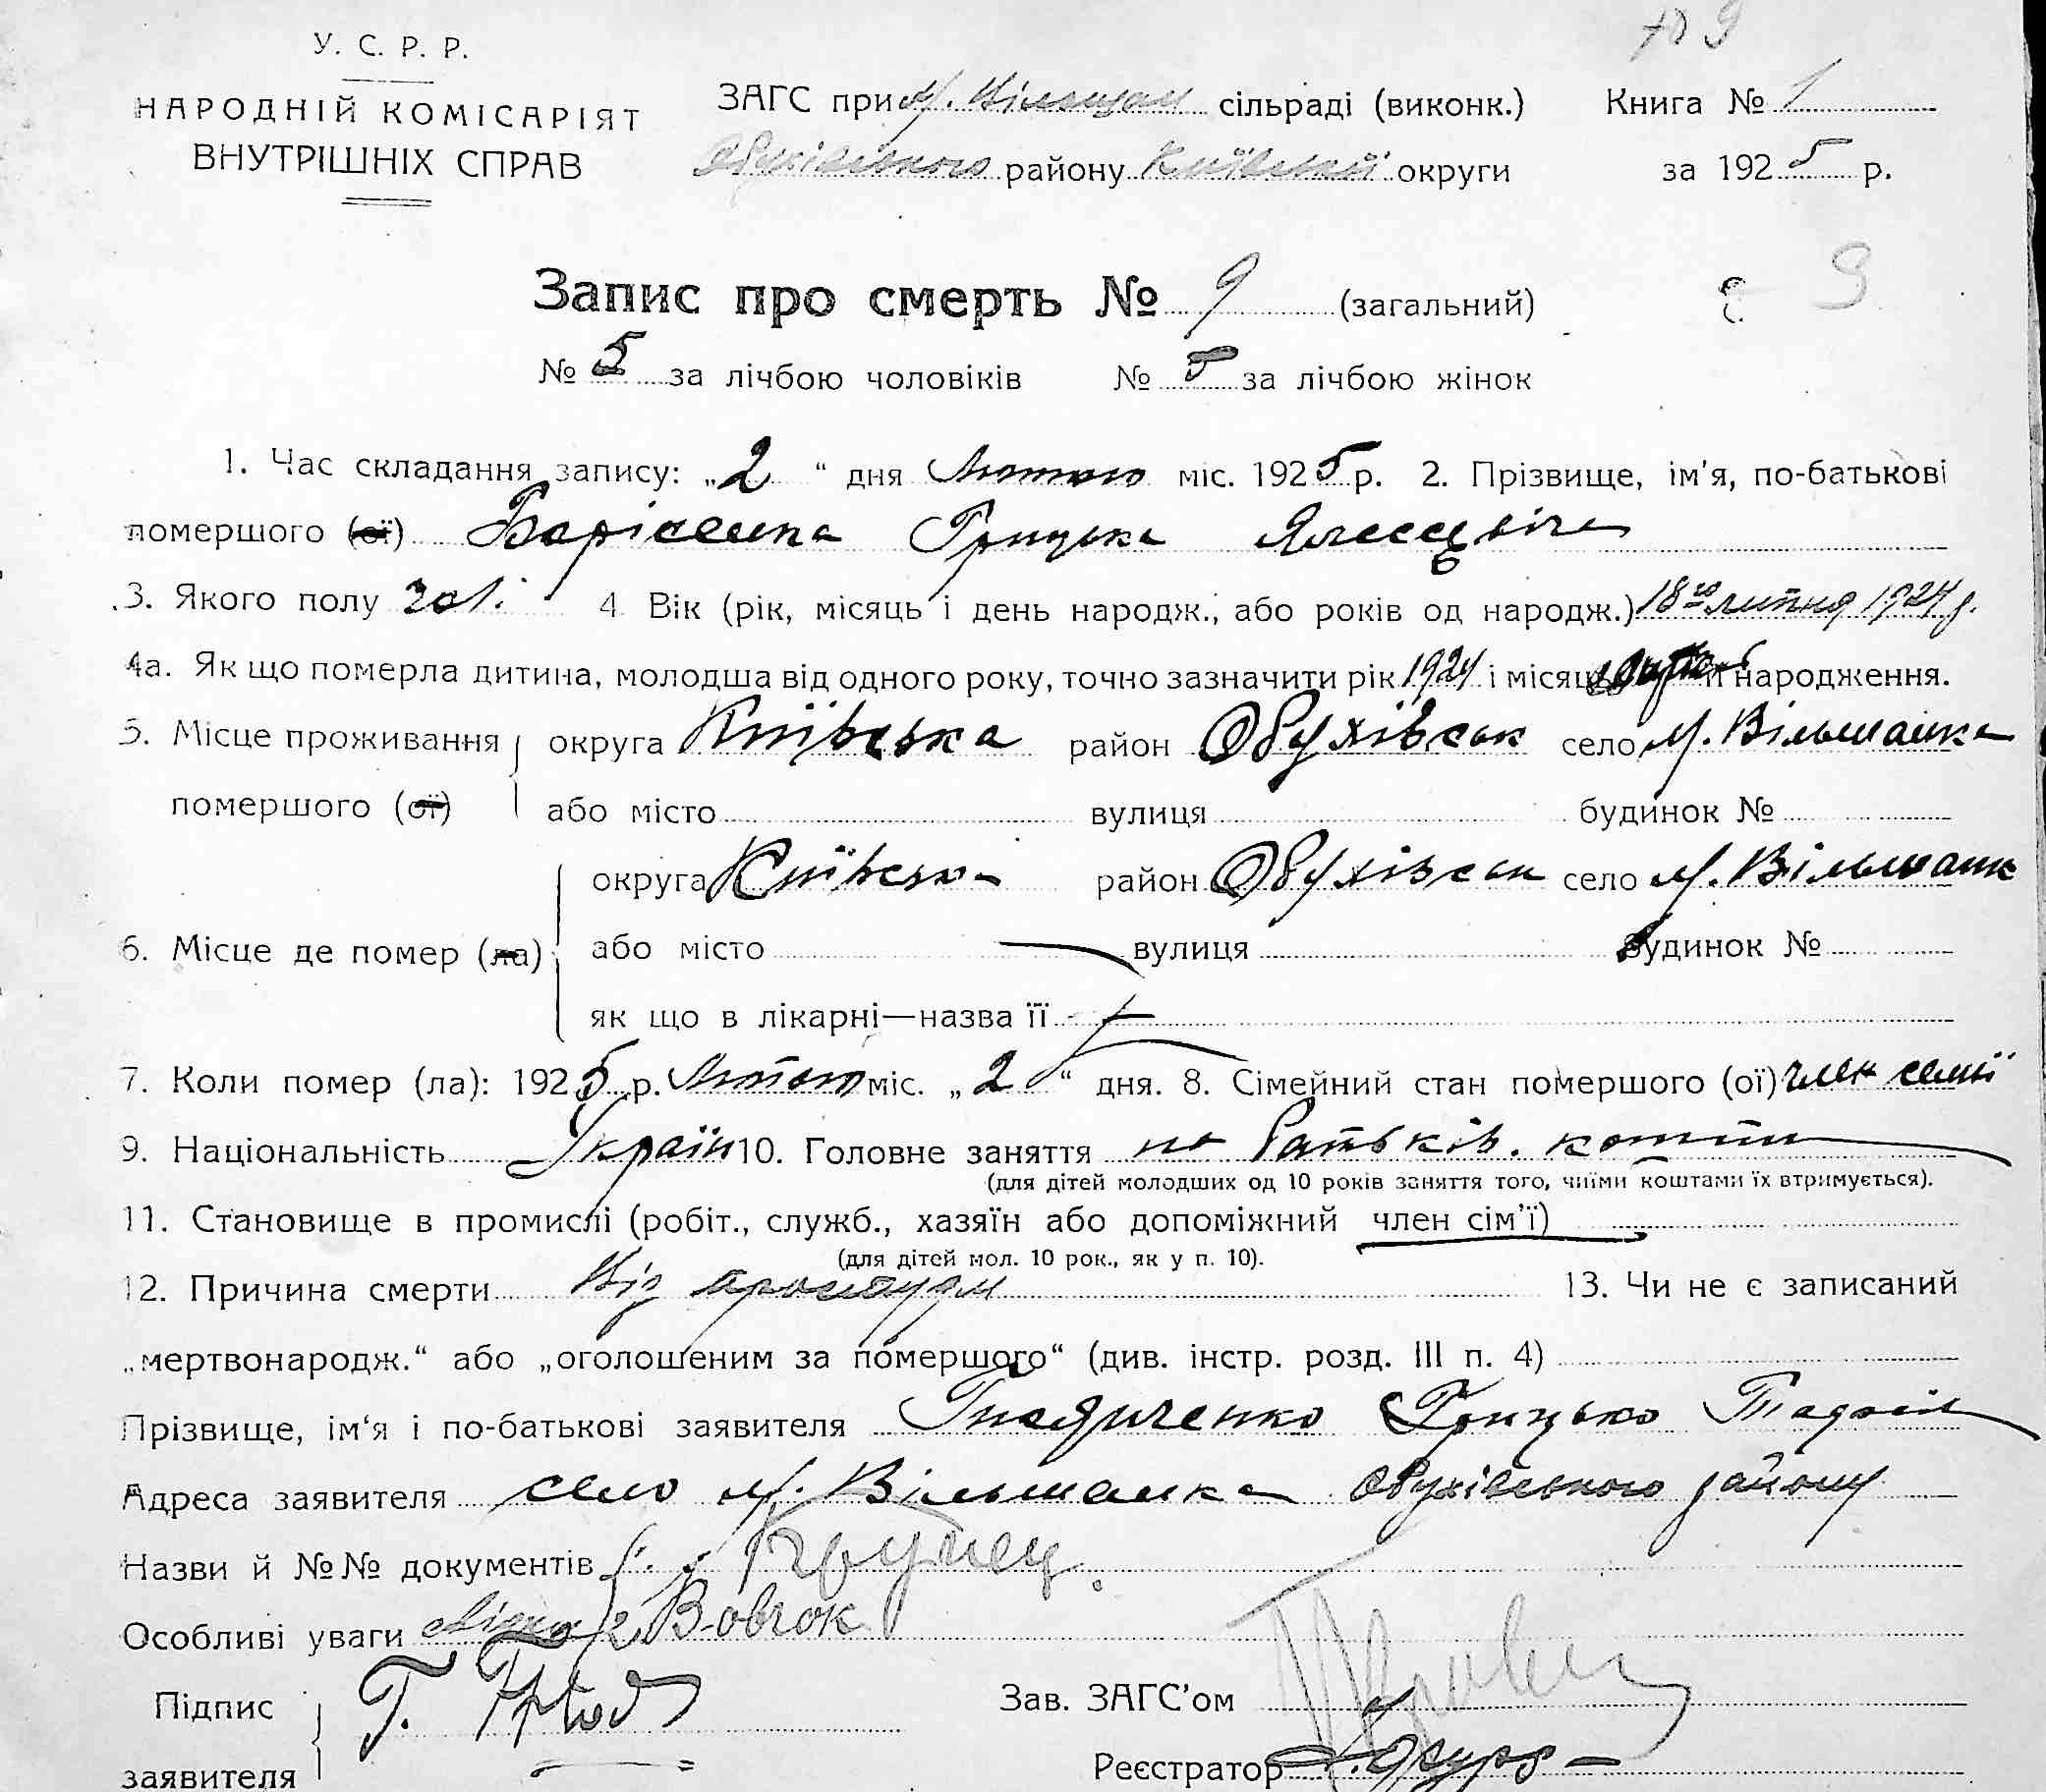 У. С. Р. Р.
НАРОДНІЙ КОМІСАРІЯТ
ВНУТРІШНІХ СПРАВ
ЗАГС при сільраді (виконк.)
Обухівського району Київської округи
Книга № 1
за 1925 р.
Запис про смерть № 9 (загальний) 9
№ 5 за лічбою чоловіків № 5 за лічбою жінок
1. Час складання запису: „2“ дня Лютого міс. 1925 р. 2. Прізвище, ім'я, по-батькові
помершого (ої) Борісенка Грицька
3. Якого полу чол. 4 Вік (рік, місяць і день народж., або років од народж.) 18го липня 1924 р.
4а. Як що померла дитина, молодша від одного року, точно зазначити рік 1924 і місяць її народження.
5. Місце проживання округа Київська район Обухівськ село м. Вільшанка
помершого (ої) або місто вулиця будинок №
округа Київська район Обухівськ село м. Вільшанк
6. Місце де помер (ла) або місто вулиця будинок №
як що в лікарні—назва її
7. Коли помер (ла): 1925 р. Лютого міс. „2“ дня. 8. Сімейний стан помершого (ої) член семії
9. Національність Україн 10. Головне заняття на батьків. кошти
(для дітей молодших од 10 років заняття того, чиїми коштами їх втримується).
11. Становище в промислі (робіт., служб., хазяїн або допоміжний член сім'ї)
(для дітей мол. 10 рок., як у п. 10).
12. Причина смерти Від простуди 13. Чи не є записаний
„мертвонародж.“ або „оголошеним за помершого“ (див. інстр. розд. III п. 4)
Прізвище, ім'я і по-батькові заявителя Грицько
Адреса заявителя село м. Вільшанка Обухівського району
Назви й №№ документів
Особливі уваги Вовчок
Підпис
заявителя
Зав. ЗАГС'ом
Реєстратор